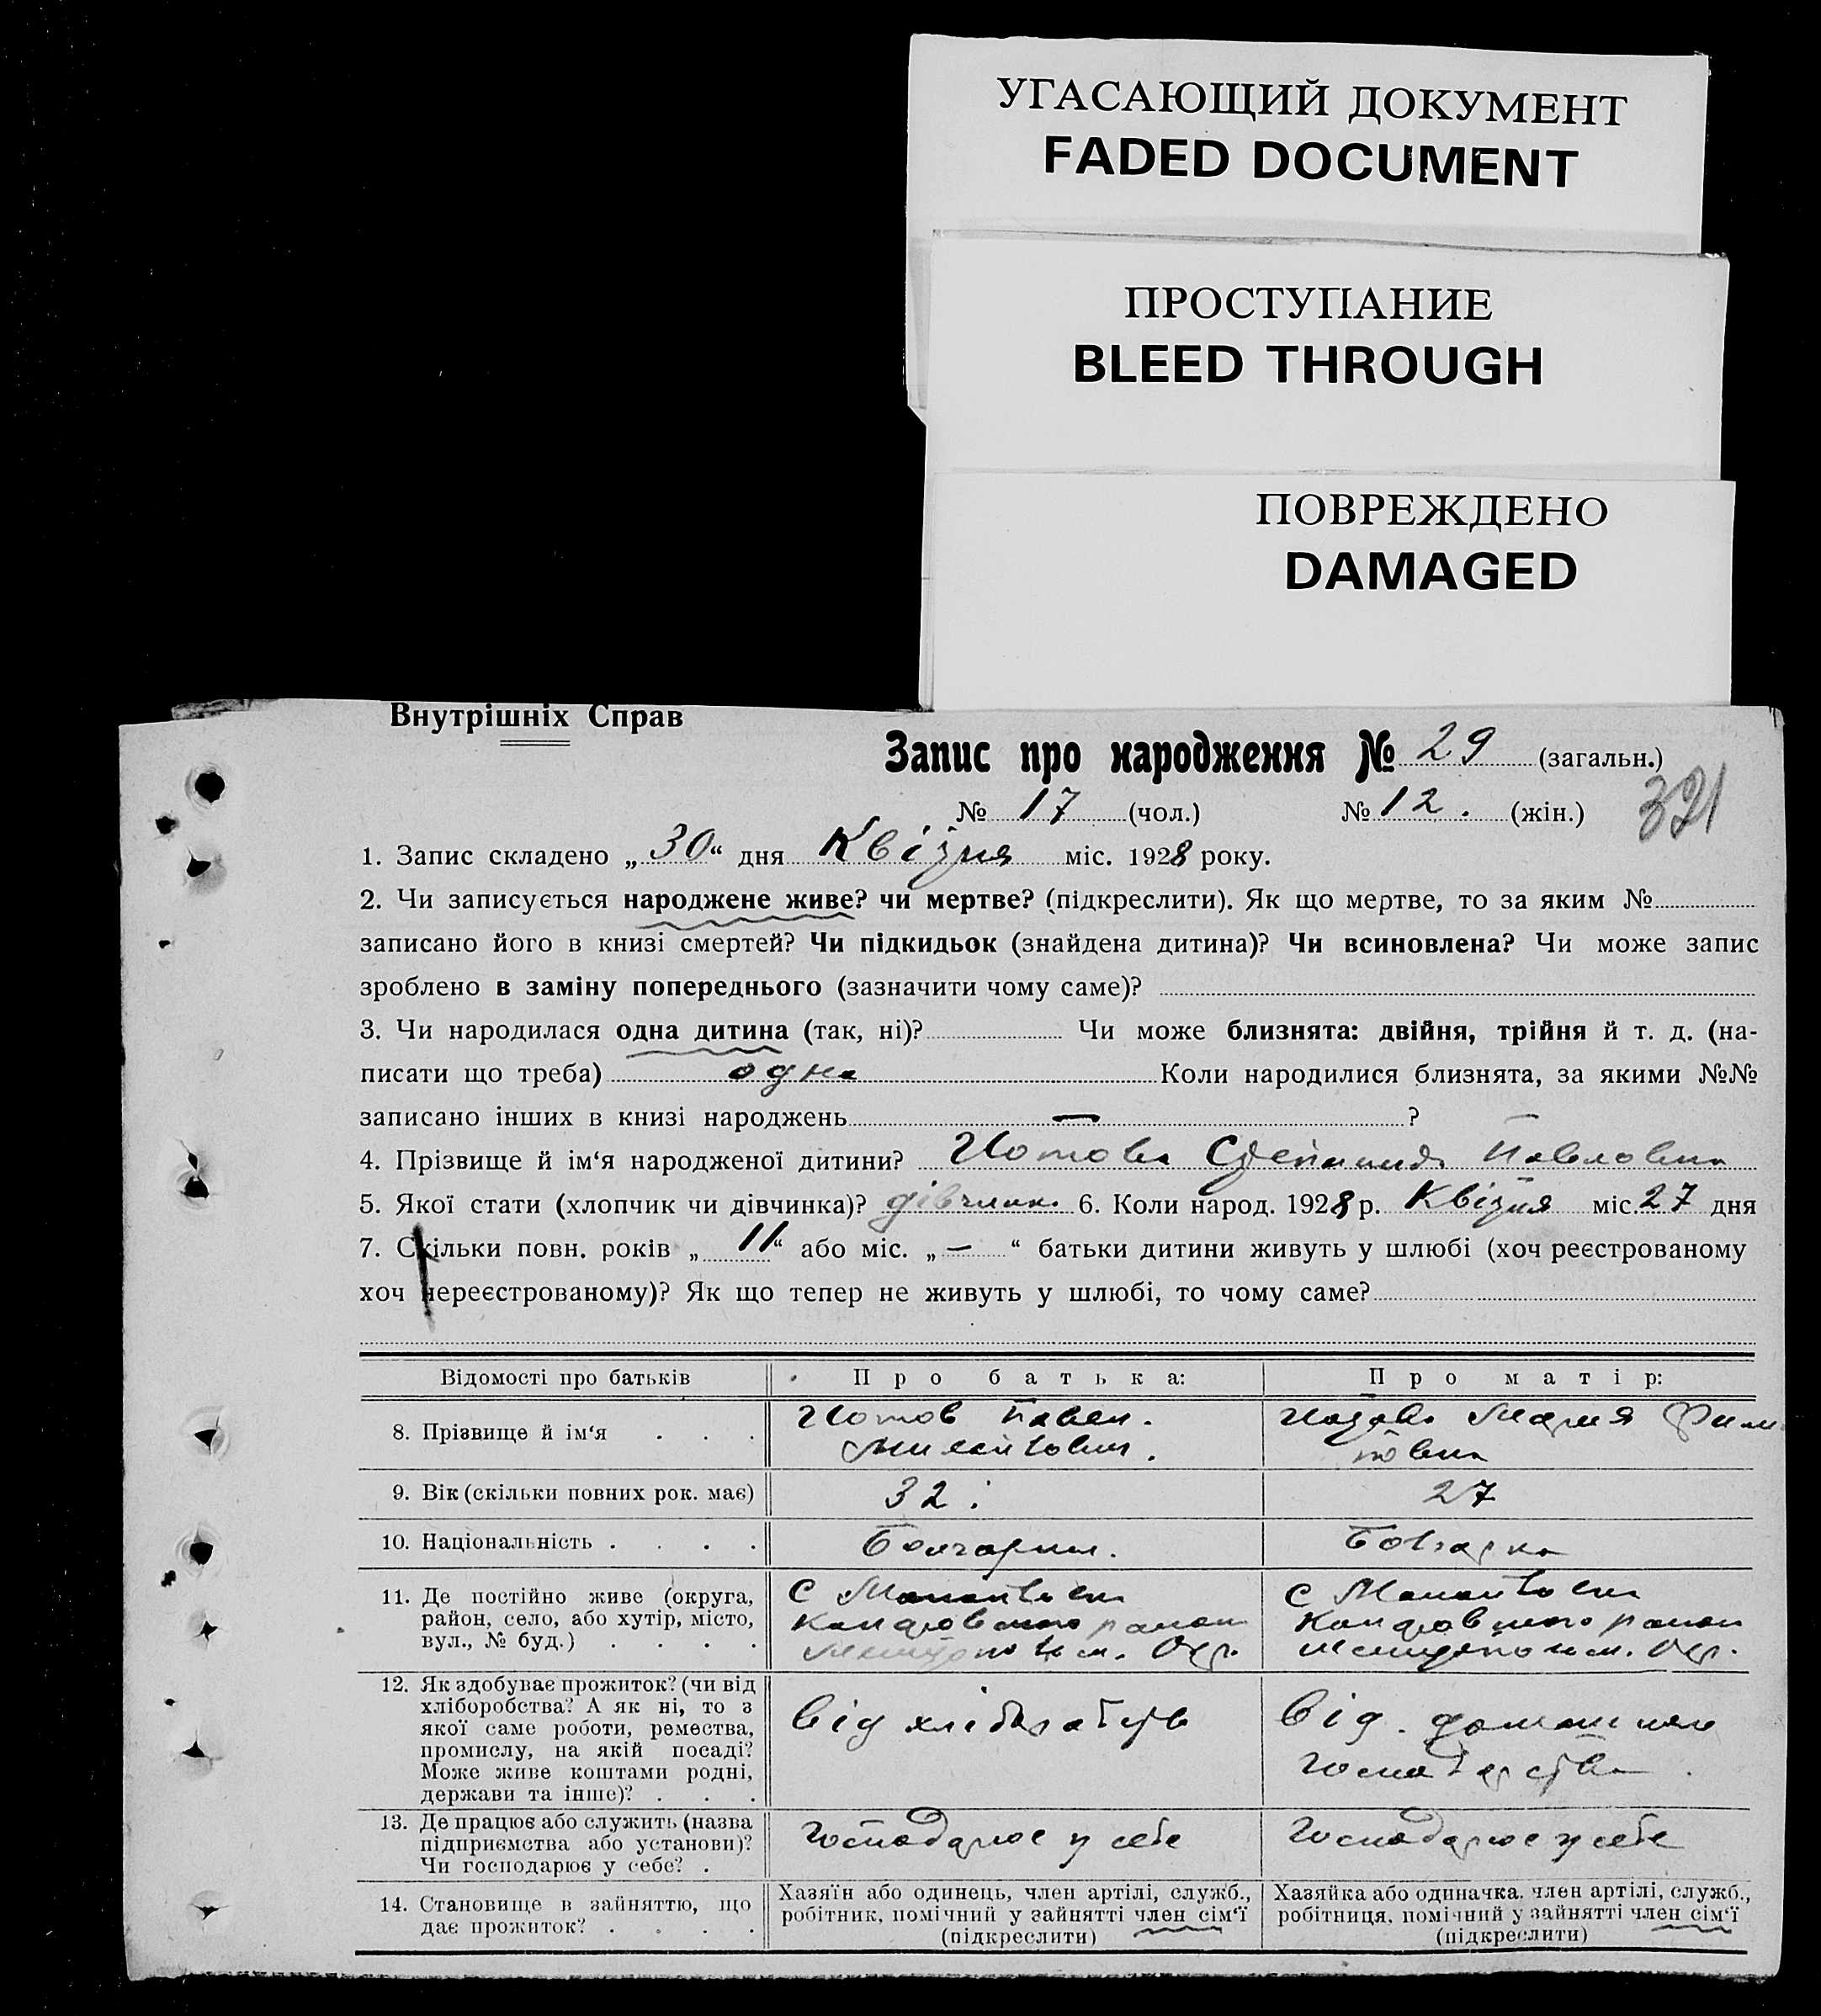 УГАСАЮЩИЙ ДОКУМЕНТ
FADED DOCUMENT
ПРОСТУПАНИЕ
BLEED THROUGH
ПОВРЕЖДЕНО
DAMAGED
Внутрішніх Справ
Запис про народження № 29 (загальн.)
№ 17 (чол.) № 12. (жін.)
321
1. Запис складено „30“ дня Квітня міс. 1928 року.
2. Чи записується народжене живе? чи мертве? (підкреслити). Як що мертве, то за яким №
записано його в книзі смертей? Чи підкидьок (знайдена дитина)? Чи всиновлена? Чи може запис
зроблено в заміну попереднього (зазначити чому саме)?
3. Чи народилася одна дитина (так, ні)? Чи може близнята: двійня, трійня й т. д. (на-
писати що треба) одна Коли народилися близнята, за якими №№
записано інших в книзі народжень — ?
4. Прізвище й ім‘я народженої дитини? Павловна
5. Якої стати (хлопчик чи дівчинка)? дівчинка 6. Коли народ. 1928 р. Квітня міс. 27 дня
7. Скільки повн. років „11“ або міс. „—“ батьки дитини живуть у шлюбі (хоч реєстрованому
хоч нереєстрованому)? Як що тепер не живуть у шлюбі, то чому саме?
Відомості про батьків
Про батька:
Про матір:
8. Прізвище й ім‘я
Павел
Мария
9. Вік (скільки повних рок. має)
32
27
10. Національність
Болгарин.
Болгарка
11. Де постійно живе (округа,
район, село, або хутір, місто,
вул., № буд.)
с
район
Окр.
с
район
Окр.
12. Як здобуває прожиток? (чи від
хліборобства? А як ні, то з
якої саме роботи, ремества,
промислу, на якій посаді?
Може живе коштами родні,
держави та інше)?
від
від
господарства
13. Де працює або служить (назва
підприємства або установи)?
Чи господарює у себе?
Господарює у себе
Господарює у себе
14. Становище в зайняттю, що
дає прожиток?
Хазяїн або одинець, член артілі, служб.,
робітник, помічний у зайнятті член сім‘ї
(підкреслити)
Хазяйка або одиначка, член артілі, служб.,
робітниця, помічний у зайнятті член сім‘ї
(підкреслити)